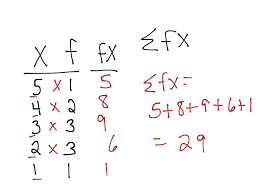 X f fX ΣfX
5 x 1 5 Σfx =
4 x 2 8 5+8+9+6+1
3 x 3 9
2 x 3 6 = 29
1 1 1